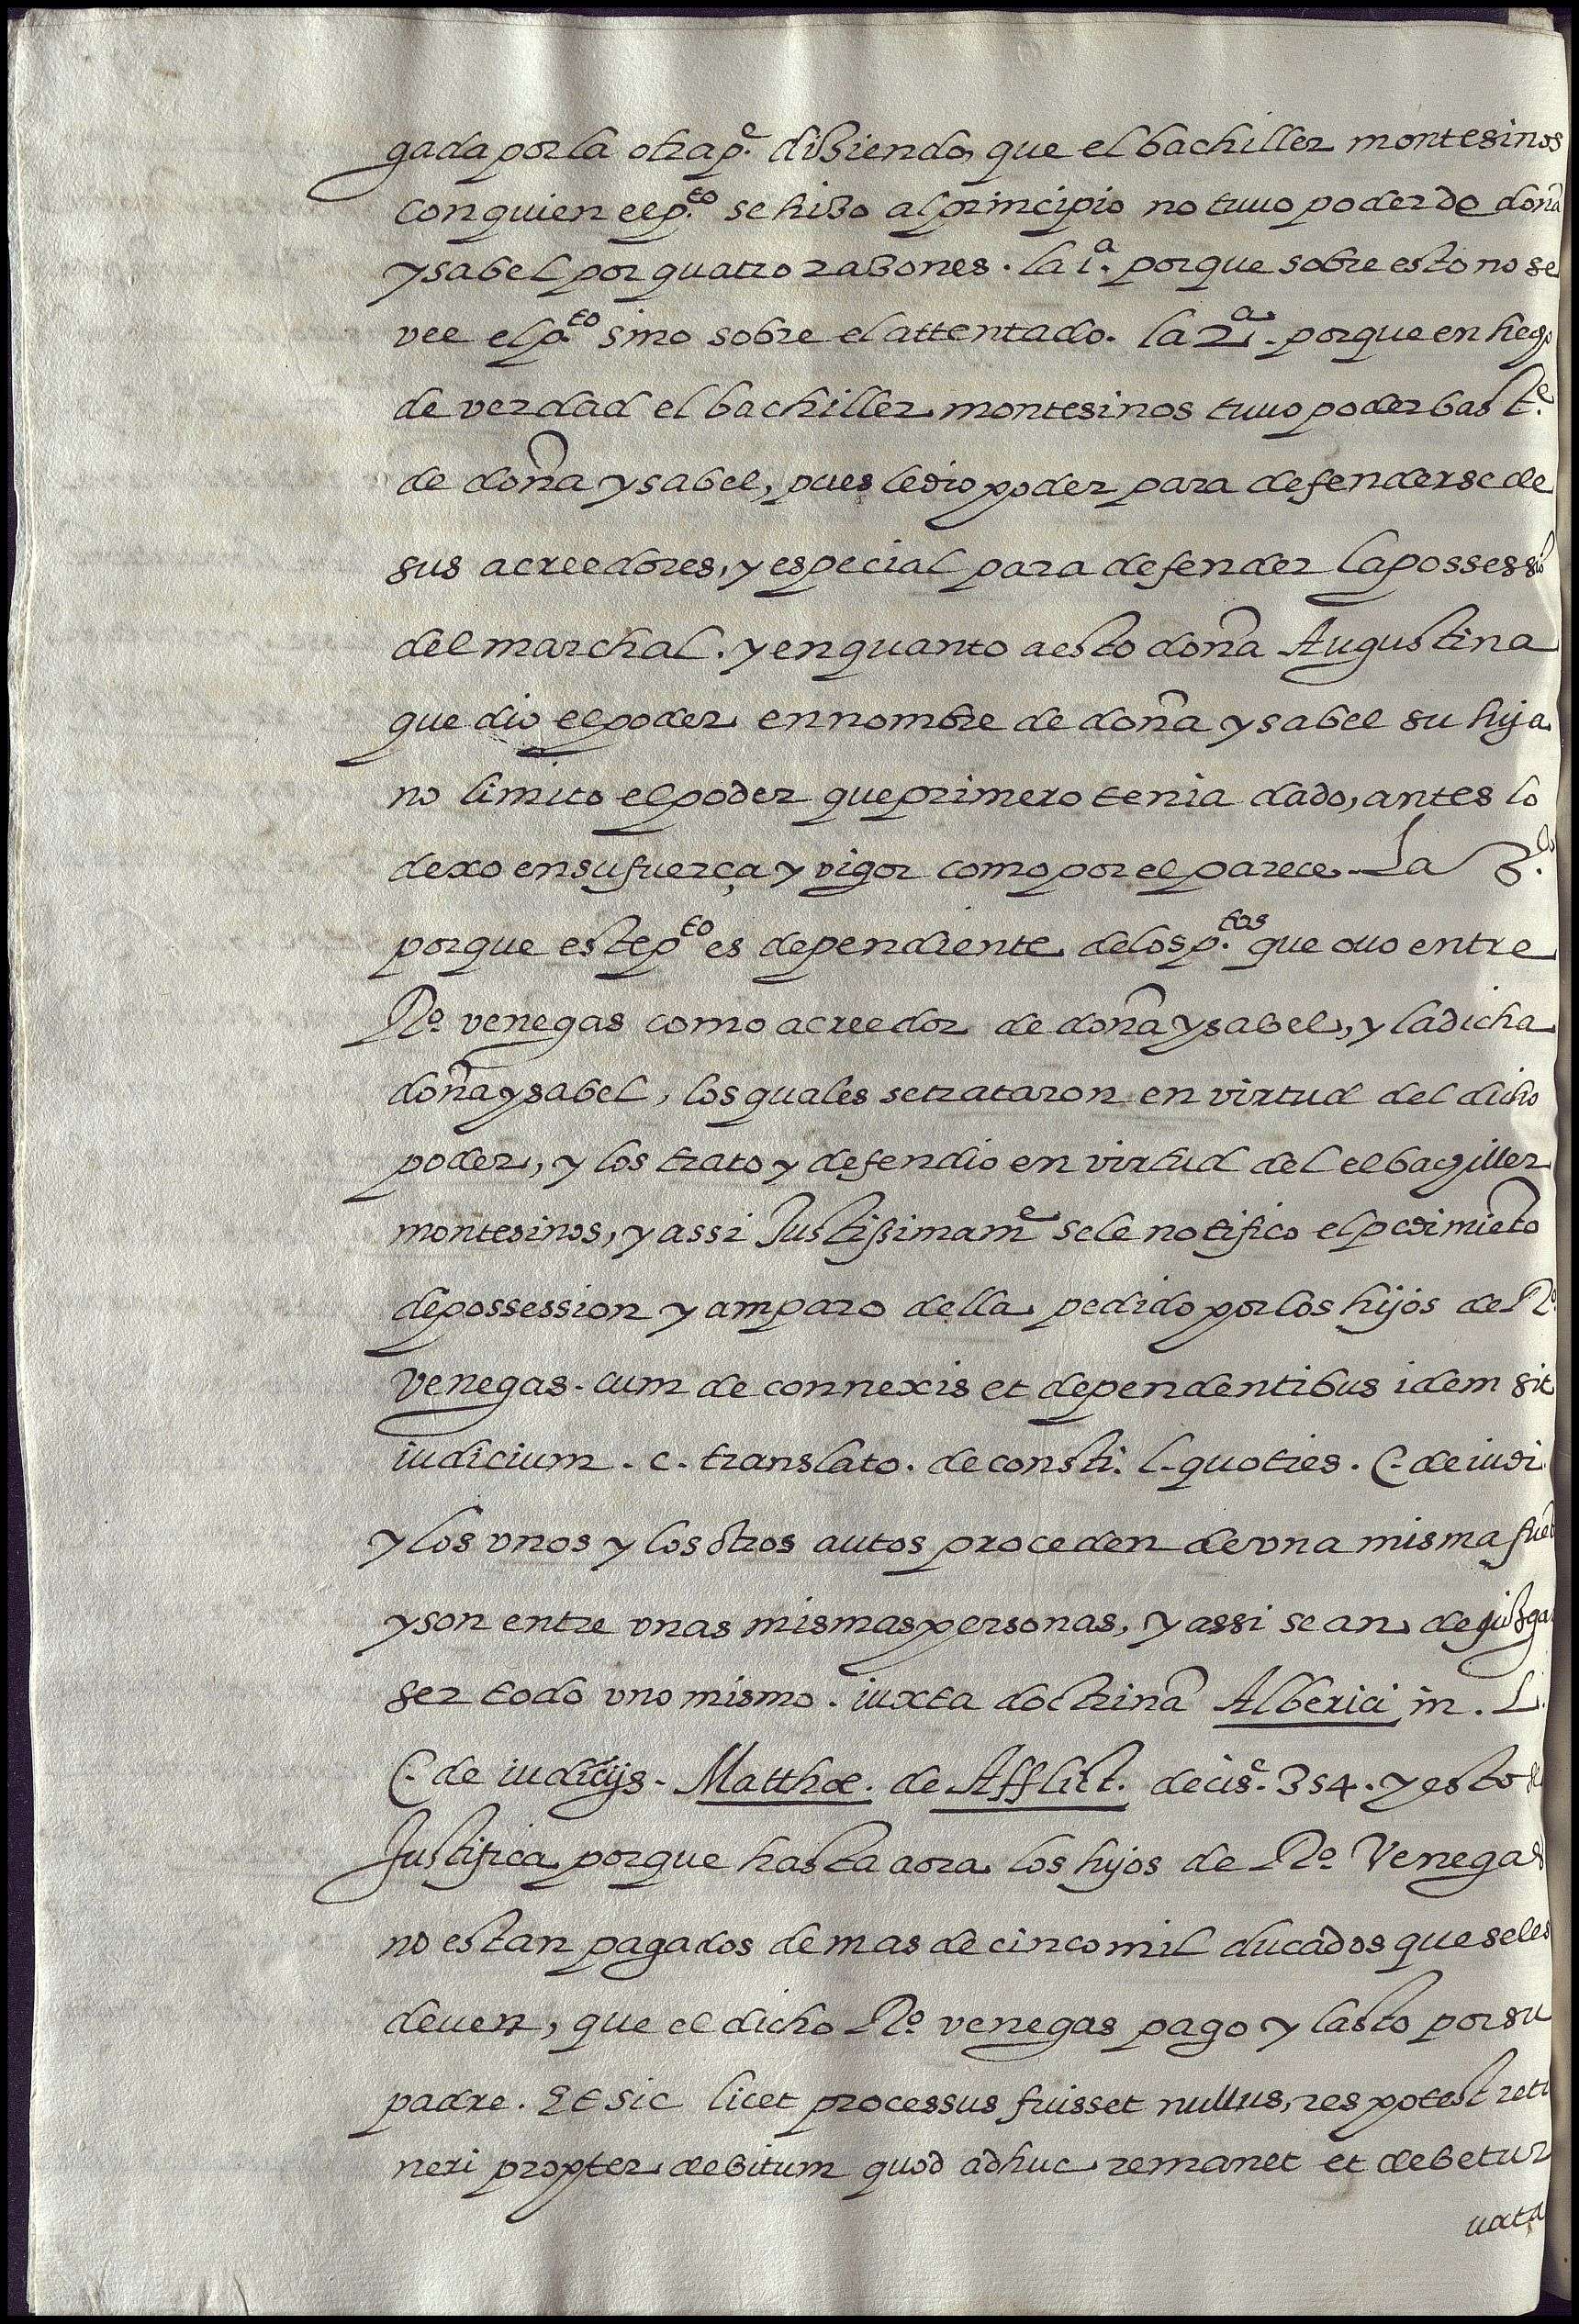 gada por la otra p.e diziendo, que el bachiller montesinos
con quien el p.to se hizo al principio no tuuo poder de doña
ysabel por quatro razones. la 1.a porque sobre esto no se
vee el p.to sino sobre el attentado. la 2.a porque en hego
de verdad el bachiller montesinos tuuo poder bast.e
de doña ysabel, pues le dio poder para defenderse de
sus acreedores, y especial para defender la possessiō
del marchal. y en quanto a esto doña Augustina
que dio el poder en nombre de doña ysabel su hija
no limito el poder que primero tenia dado, antes lo
dexo en su fuerça y vigor como por el parece. La 3.a
porque este p.to es dependiente de los p.tos que ouo entre
Ro venegas como acreedor de doña ysabel, y la dicha
doña ysabel, los quales se trataron en virtud del dicho
poder, y los trato y defendio en virtud del el bagiller
montesinos, y assi Justissimam.e se le notifico el pedimiēto
de possession y amparo della pedido por los hijos de Ro
Venegas. cum de connexis et dependentibus idem sit
iudicium. c. translato. de consti. l. quoties. C. de iudi.
y los vnos y los otros autos proceden de vna misma fuēt
y son entre vnas mismas personas, y assi se an de juzgar
ser todo vno mismo. iuxta doctrinā Alberici in. L.
C. de iudicijs. Matthæ. de Afflict. decis. 354. y esto se
Justifica porque hasta aora los hijos de Ro Venegas
no estan pagados de mas de cinco mil ducados que se les
deuen, que el dicho Ro venegas pago y lasto por su
padre. Et sic licet processus fuisset nullus, res potest reti
neri propter debitum quod adhuc remanet et debetur
uxta